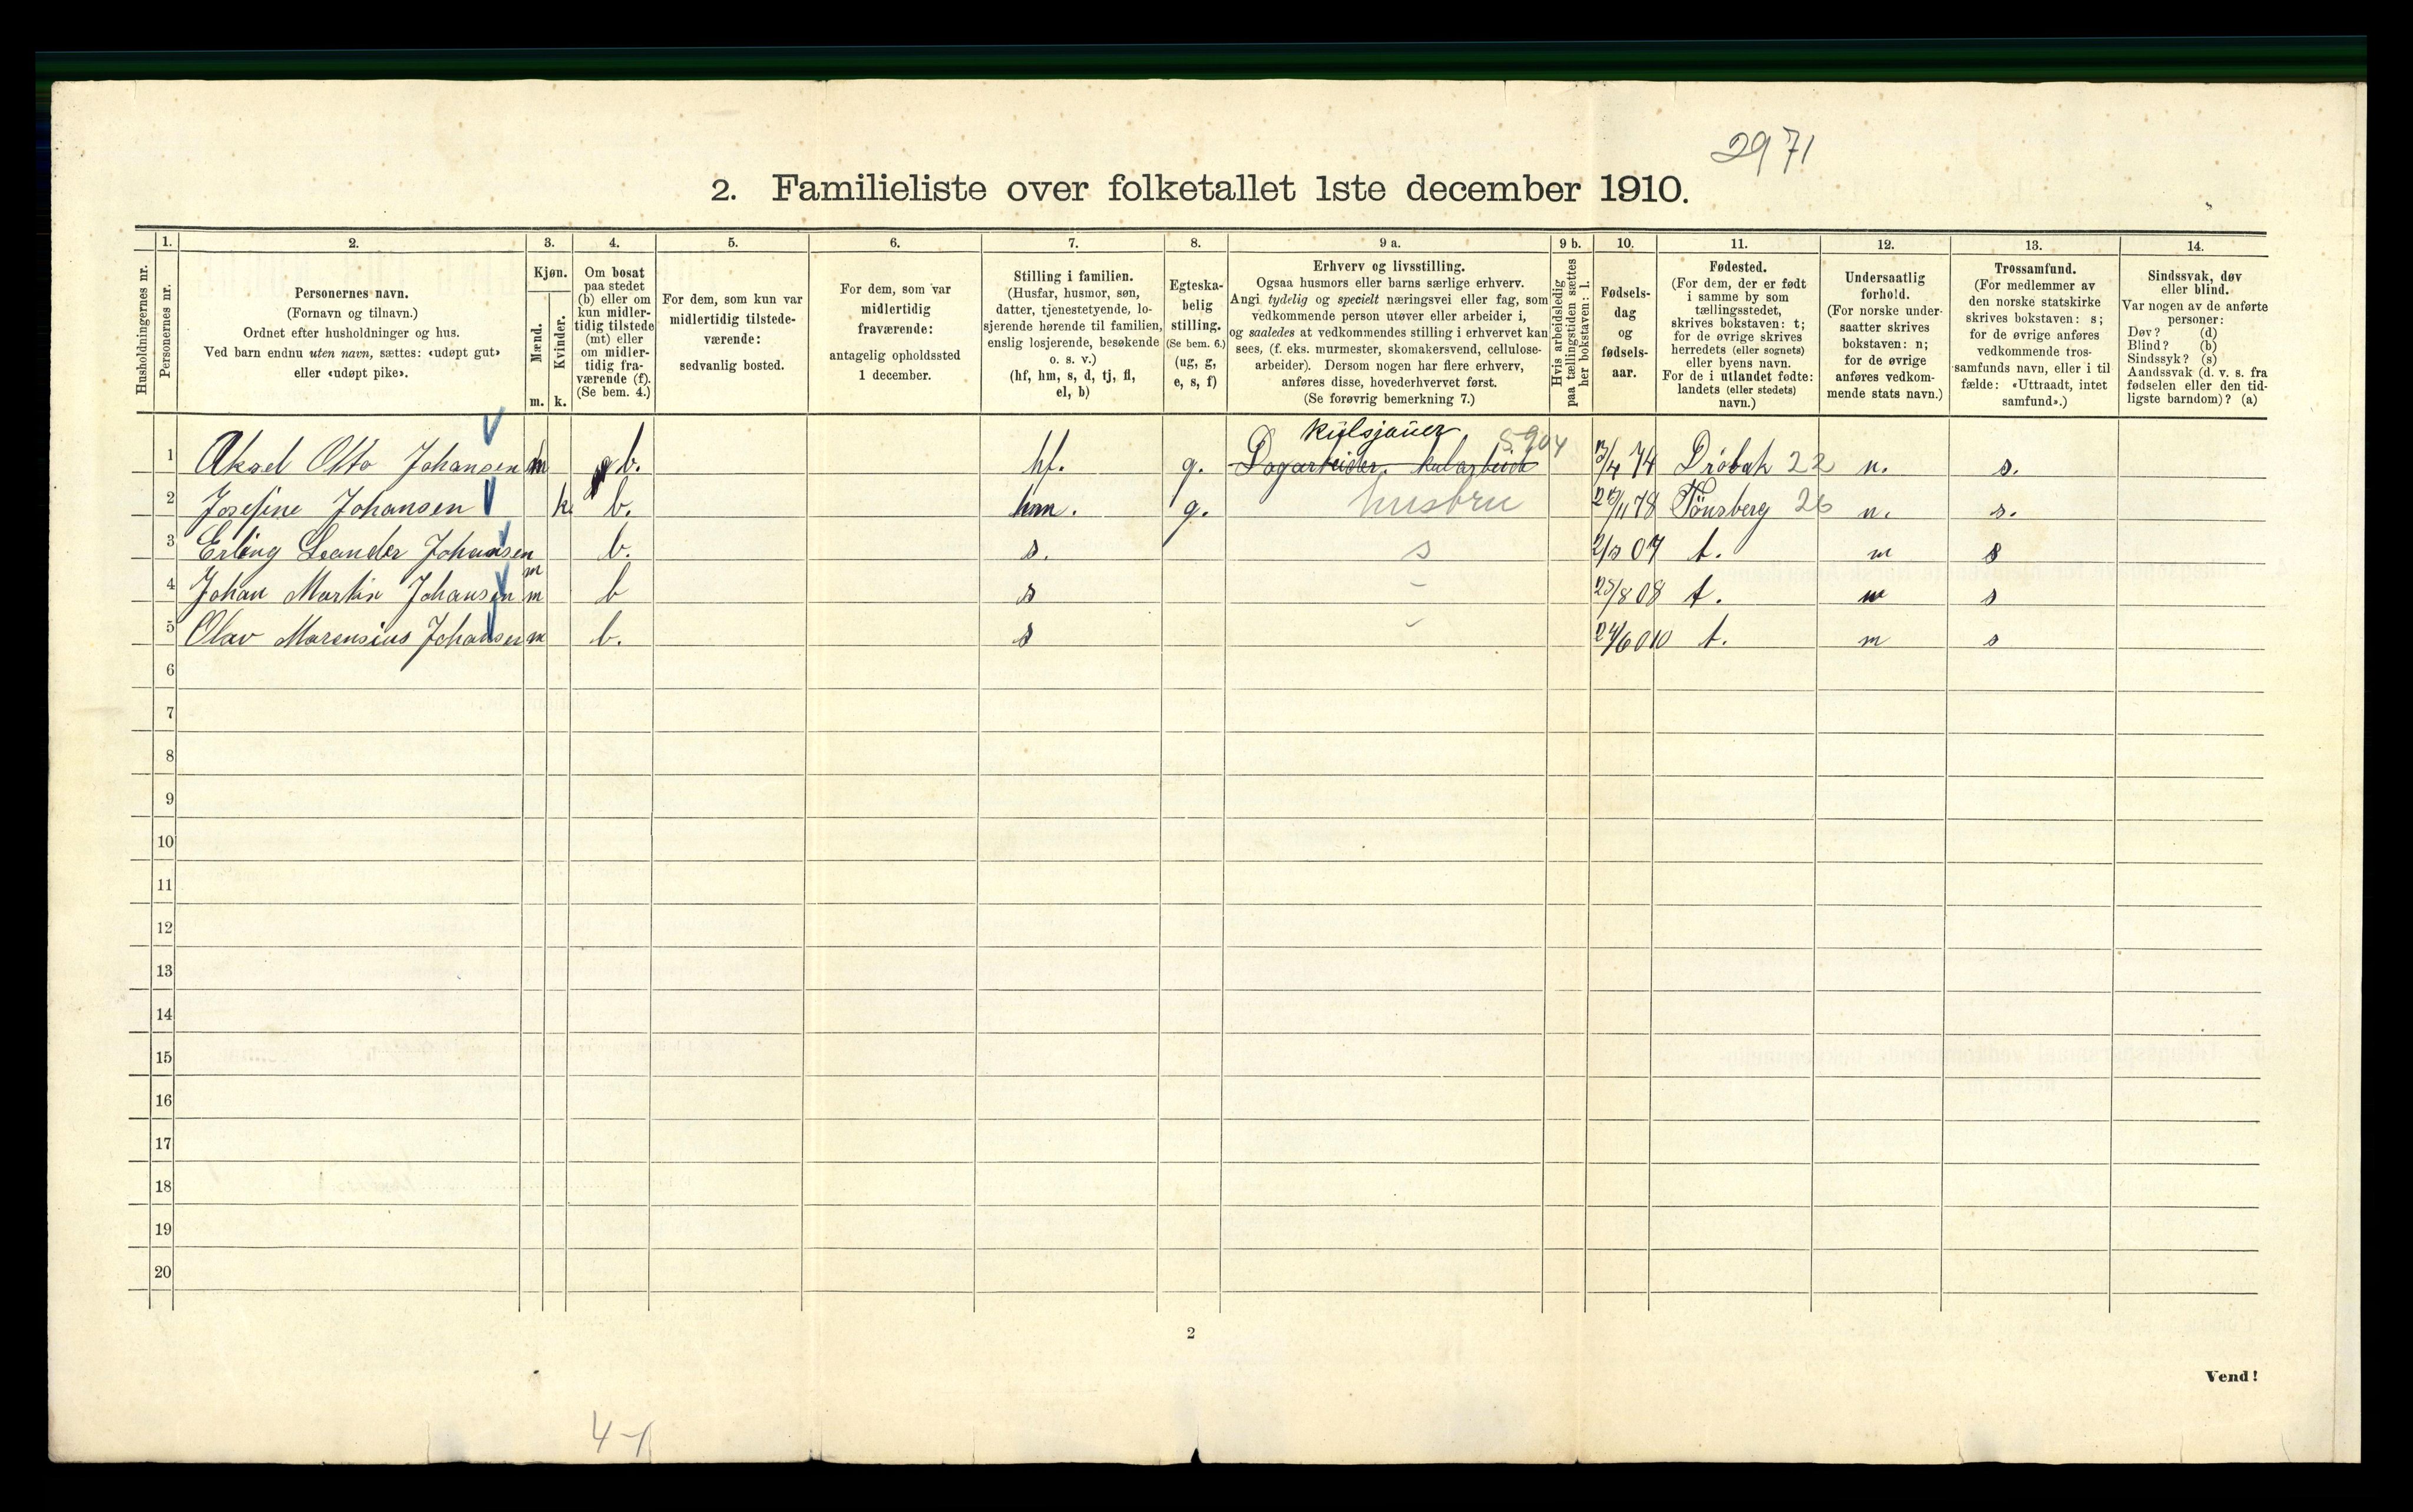 2971
2. Familieliste over folketallet 1ste december 1910.
Husholdningernes nr.
1.
Personernes nr.
2.
Personernes navn.
(Fornavn og tilnavn.)
Ordnet efter husholdninger og hus.
Ved barn endnu uten navn, sættes: «udøpt gut»
eller «udøpt pike».
3.
Kjøn.
Mænd.
Kvinder.
m. k.
4.
Om bosat
paa stedet
(b) eller om
kun midler-
tidig tilstede
(mt) eller
om midler-
tidig fra-
værende (f).
(Se bem. 4.)
5.
For dem, som kun var
midlertidig tilstede-
værende:
sedvanlig bosted.
6.
For dem, som var
midlertidig
fraværende:
antagelig opholdssted
1 december.
7.
Stilling i familien.
(Husfar, husmor, søn,
datter, tjenestetyende, lo-
sjerende hørende til familien,
enslig losjerende, besøkende
o. s. v.)
(hf, hm, s, d, tj, fl,
el, b)
8.
Egteska-
belig
stilling.
(Se bem. 6.)
(ug, g,
e, s, f)
9 a.
Erhverv og livsstilling.
Ogsaa husmors eller barns særlige erhverv.
Angi tydelig og specielt næringsvei eller fag, som
vedkommende person utøver eller arbeider i,
og saaledes at vedkommendes stilling i erhvervet kan
sees, (f. eks. murmester, skomakersvend, cellulose-
arbeider). Dersom nogen har flere erhverv,
anføres disse, hovederhvervet først.
(Se forøvrig bemerkning 7.)
9 b.
Hvis arbeidsledig
paa tællingstiden sættes
her bokstaven: l.
10.
Fødsels-
dag
og
fødsels-
aar.
11.
Fødested.
(For dem, der er født
i samme by som
tællingsstedet,
skrives bokstaven: t;
for de øvrige skrives
herredets (eller sognets)
eller byens navn.
For de i utlandet fødte:
landets (eller stedets)
navn.)
12.
Undersaatlig
forhold.
(For norske under-
saatter skrives
bokstaven: n;
for de øvrige
anføres vedkom-
mende stats navn.)
13.
Trossamfund.
(For medlemmer av
den norske statskirke
skrives bokstaven: s;
for de øvrige anføres
vedkommende tros-
samfunds navn, eller i til
fælde: «Uttraadt, intet
samfund».)
14.
Sindssvak, døv
eller blind.
Var nogen av de anførte
personer:
Døv? (d)
Blind? (b)
Sindssyk? (s)
Aandssvak (d. v. s. fra
fødselen eller den tid-
ligste barndom)? (a)
Kulsjauer 5904
1 Aksel Otto Johansen m b. hf. g. Dagarbeider. Kularbeide 13/4 74 Drøbak 22 n. s.
2 Josefine Johansen k. b. hm. g. husbru 11 78 Tönsberg 26 n. s.
3 Erling Leander Johansen m b. s. s 07 t. n s
4 Johan Martin Johansen m b s - 25/8 08 t. n s
5 Olav Marensius Johansen m b. s - 24/6 010 t. n s
6
7
8
9
10
11
12
13
14
15
16
17
18
19
20
2
Vend!
4-1